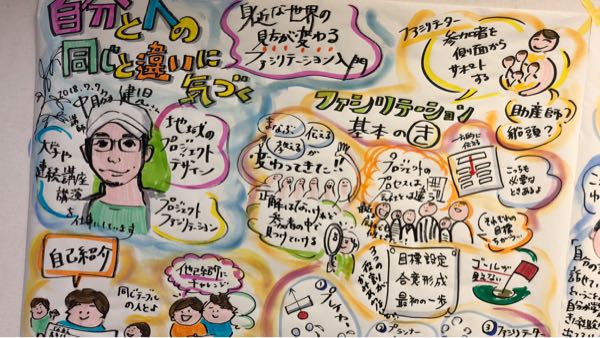 自分と人の
同じと違いに
気づく
身近な世界の
見方が変わる
ファシリテーション入門
ファシリテーター
参加者を
側面から
サポート
する
助産師?
船頭?
講師
地域の
プロジェクト
デザイナー
大学や
連続講座
講演
を仕事にしています
プロジェクト
ファシリテーション
ファシリテーション
基本のき
まなぶ
伝える
教える
が
変わってきた!!
正解はないけど
参加者の中で
見つけている
一方的に
伝える
こっちも
必要な
ときあるよ
プロジェクトの
プロセスは
それぞれの
目標
ちがう
目標設定
合意形成
最初の一歩
ゴールが
見えない
3つの役割が
自己紹介
同じテーブル
の人と
他己紹介に
チャレンジ!
①プレイヤー
②プランナー
③ファシリテーター